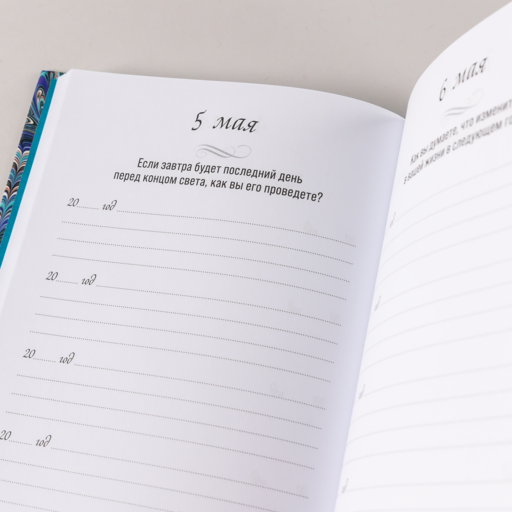 5 мая
Если завтра будет последний день
перед концом света, как вы его проведете?
20...... год
20...... год
20...... год
20...... год
6 мая
Как вы думаете, что изменит
в вашей жизни в следующем го